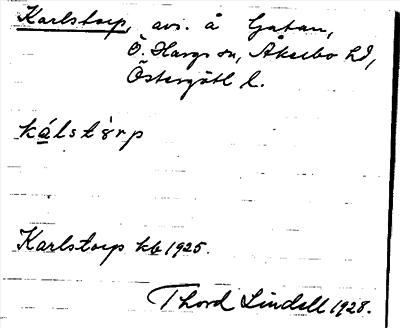 Karlstorp, avs. å Gatan,
Ö. Hargs sn, Åkerbo hd,
Östergötl l.
kálstòrp
Karlstorp kb 1925.
Thord Lindell 1928.